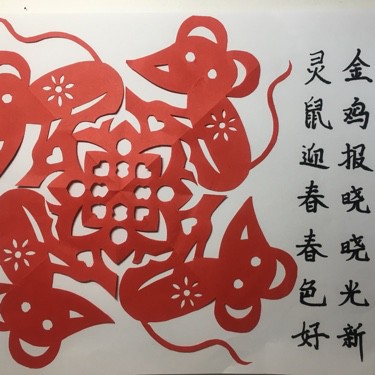 金鸡报晓晓光新
灵鼠迎春春色好